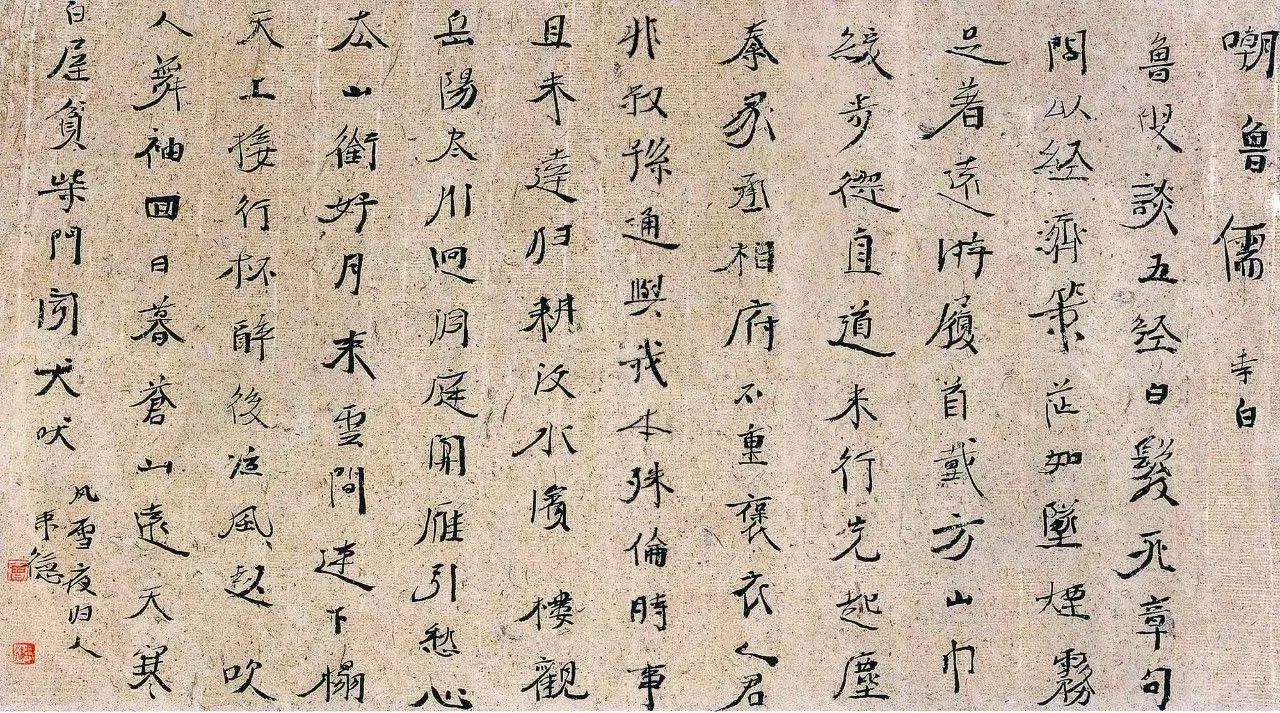 嘲魯儒 李白
魯叟談五经白髮死章句
問以经濟策茫如墜煙霧
足著远游履首戴方山巾
緩步從直道未行先起塵
秦家丞相府不重褒衣人君
非叔孫通與我本殊倫時事
且未達归耕汶水濱 樓觀
岳陽尽川迥洞庭開雁引愁心
去山銜好月来雲間连下榻
天上接行杯醉後凉风起吹
人舞袖回日暮蒼山遠天寒
白屋貧柴門闻犬吠风雪夜归人